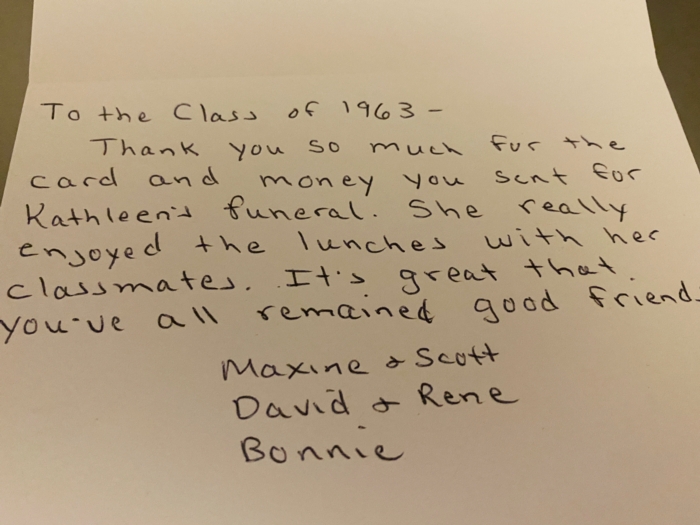 To the Class of 1963 -
Thank you so much for the
card and money you sent for
Kathleen's funeral. She really
enjoyed the lunches with her
classmates. It's great that
you've all remained good friend
Maxine & Scott
David & Rene
Bonnie